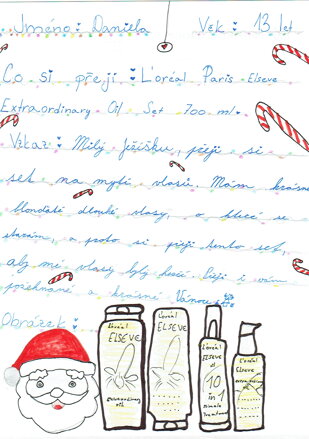 Jméno: Daniela Věk: 13 let
Co si přeji: L'oréal Paris Elseve
Extraordinary Oil Set 700 ml.
Vzkaz: Milý Ježíšku, přeji si
set na mytí vlasů. Mám krásné
blonďaté dlouhé vlasy, o které se
starám, a proto si přeji tento set,
aby mé vlasy byly hezčí. Přeji i vám
požehnané a krásné Vánoce
Obrázek:
L'oréal
ELSEVE
Extraordinary
oil
L'oréal
ELSEVE
L'oréal
ELSEVE
10
in 1
L'oréal
Elseve